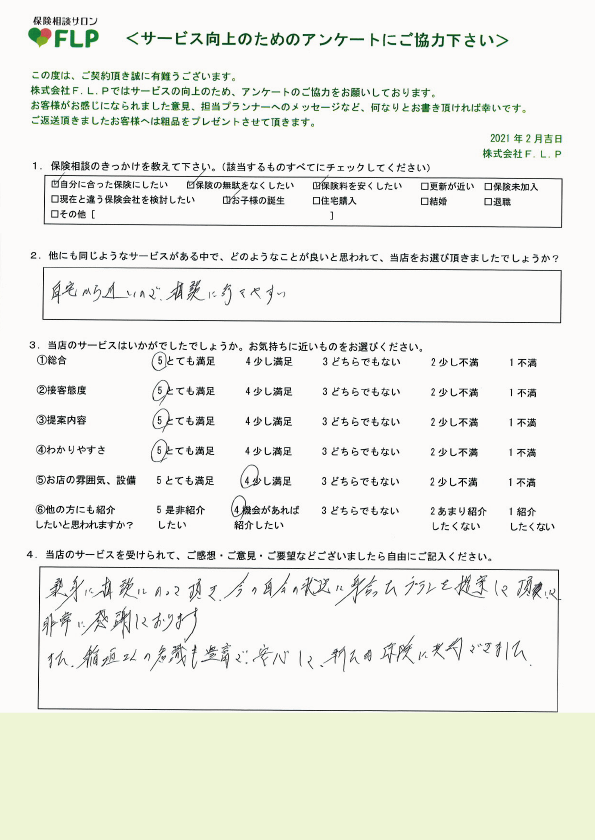 保険相談サロン
FLP
＜サービス向上のためのアンケートにご協力下さい＞
この度は、ご契約頂き誠に有難うございます。
株式会社Ｆ.Ｌ.Ｐではサービスの向上のため、アンケートのご協力をお願いしております。
お客様がお感じになられました意見、担当プランナーへのメッセージなど、何なりとお書き頂ければ幸いです。
ご返送頂きましたお客様へは粗品をプレゼントさせて頂きます。
2021年2月吉日
株式会社Ｆ.Ｌ.Ｐ
１．保険相談のきっかけを教えて下さい。（該当するものすべてにチェックしてください）
☑自分に合った保険にしたい ☑保険の無駄をなくしたい ☑保険料を安くしたい □更新が近い □保険未加入
□現在と違う保険会社を検討したい ☑お子様の誕生 □住宅購入 □結婚 □退職
□その他［ ］
２．他にも同じようなサービスがある中で、どのようなことが良いと思われて、当店をお選び頂きましたでしょうか？
自宅から近いので、相談に行きやすい
３．当店のサービスはいかがでしたでしょうか。お気持ちに近いものをお選びください。
①総合 5とても満足 4少し満足 3どちらでもない 2少し不満 1不満
②接客態度 5とても満足 4少し満足 3どちらでもない 2少し不満 1不満
③提案内容 5とても満足 4少し満足 3どちらでもない 2少し不満 1不満
④わかりやすさ 5とても満足 4少し満足 3どちらでもない 2少し不満 1不満
⑤お店の雰囲気、設備 5とても満足 4少し満足 3どちらでもない 2少し不満 1不満
⑥他の方にも紹介 5是非紹介 4機会があれば 3どちらでもない 2あまり紹介 1紹介
したいと思われますか？ したい 紹介したい したくない したくない
４．当店のサービスを受けられて、ご感想・ご意見・ご要望などございましたら自由にご記入ください。
親身に相談にのって頂き、今の自分の状況に見合ったプランを提案して頂
非常に感謝しております
また、稲垣さんの知識も豊富で、安心して、新たな保険に契約できました。